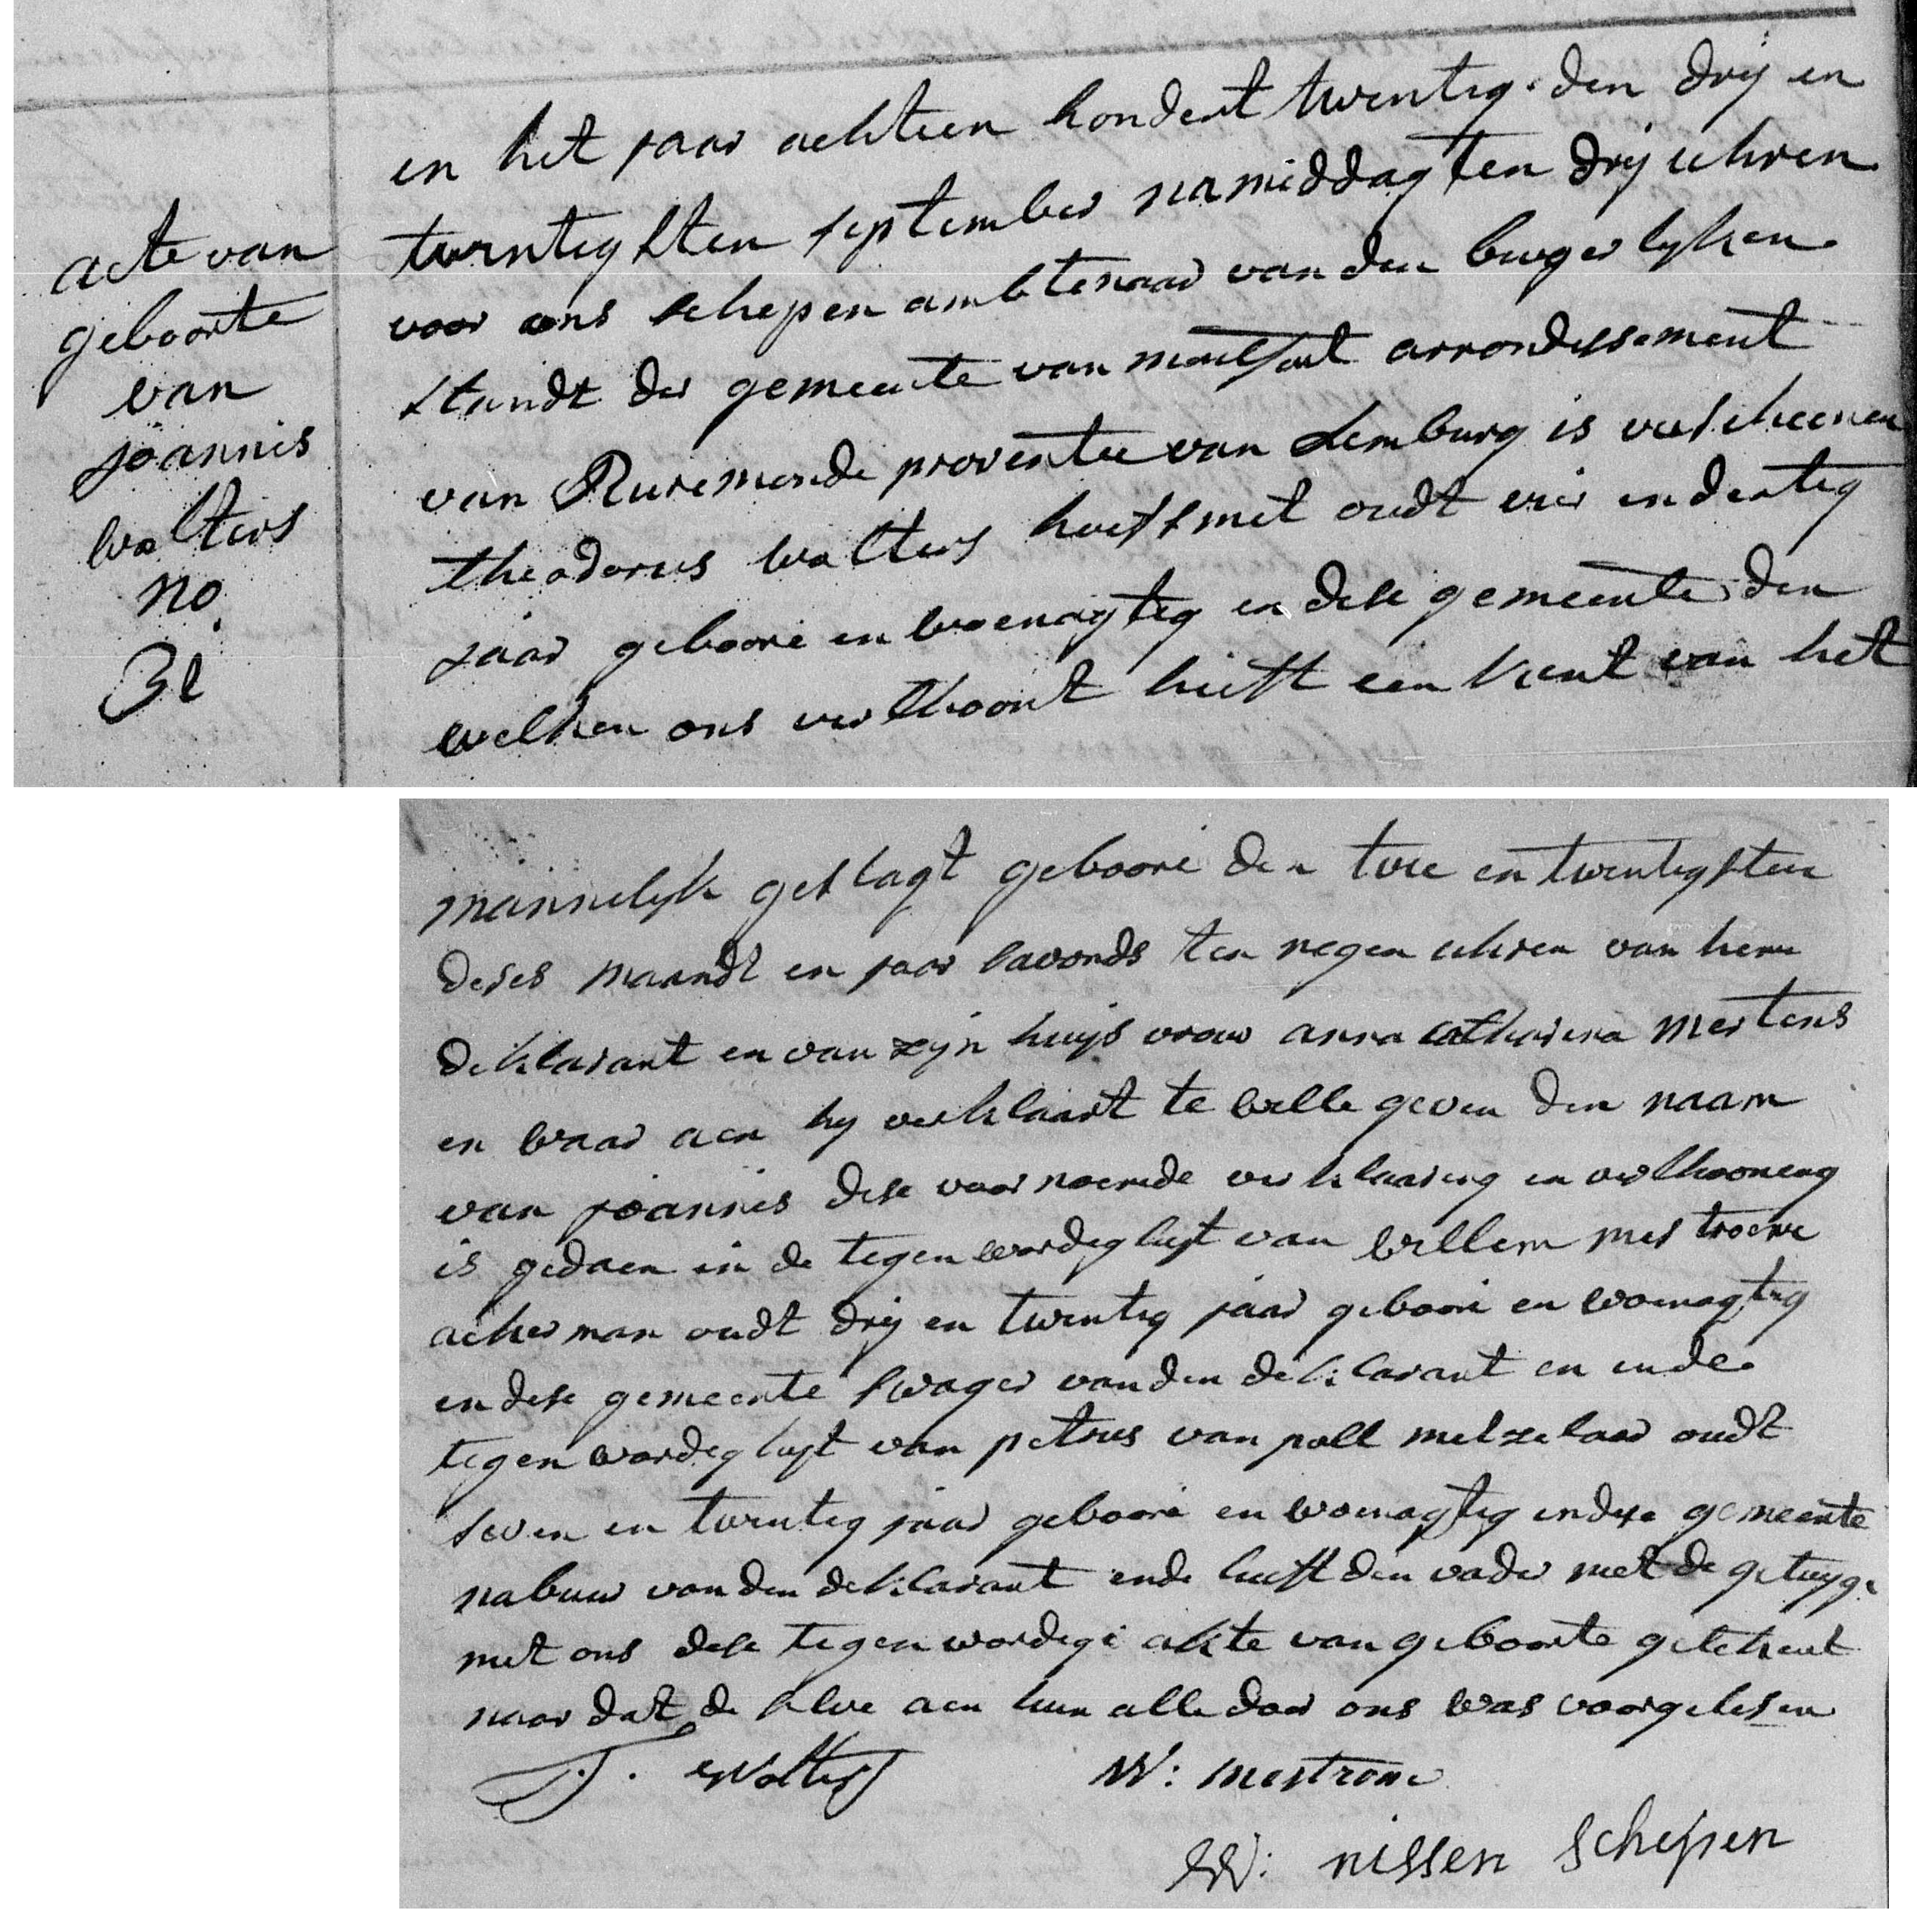 acte van
geboorte
van
joannis
wolters
no
31
en het jaar achteen hondert twentig den drij en
twentigsten september namiddag ten drij uhren
voor ons schepen ambtenaar van den burgerlyken
standt der gemeente van arrondissement
van Ruremonde provintie van Lemburg is verscheenen
theodorus wolters hoefsmet oudt vier en dertig
jaar geboore en woenagtig en dese gemeente den
welken ons verthoont heeft een kent van het
mannelyk geslagt geboore den twe en twentigsten
deses maandt en jaar savonds ten negen uhren van hem
deklarant en van zijn huijs vrouw anna catharina mertens
en waar aen hy verklaart te wille geven den naam
van joannis dese voor noemde verklaaring en verthooneng
is gedaen in de tegenwordegheyt van willem mestrome
ackerman oudt drij en twentig jaar geboore en woenagtig
en dese gemeente swager van den deklarant en ende
tegenwordegheyt van petrus van poll metzelaar oudt
seven en twentig jaar geboore en woenagtig en dese gemeente
nabuur van den deklarant ende heeft den vader met de getuyge
met ons dese tegenwordege akte van geboorte getekent
naar dat de selve aen hun alle door ons was voorgelesen
T. Wolters W: mestrome
W: nissen Schepen